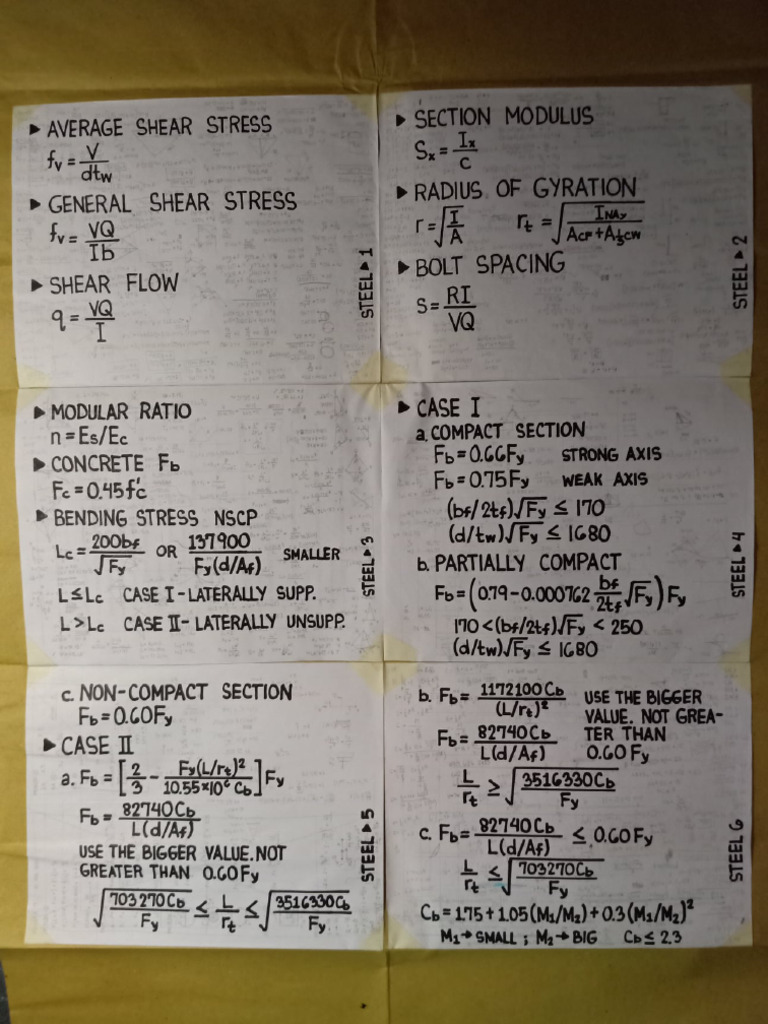 ▶ AVERAGE SHEAR STRESS
fv = V/dtw
▶ GENERAL SHEAR STRESS
fv = VQ/Ib
▶ SHEAR FLOW
q = VQ/I
STEEL ▶ 1
▶ SECTION MODULUS
Sx = Ix/c
▶ RADIUS OF GYRATION
r = √(I/A)    rt = √(INAy/(ACF + A⅓CW))
▶ BOLT SPACING
S = RI/VQ
STEEL ▶ 2
▶ MODULAR RATIO
n = Es/Ec
▶ CONCRETE Fb
Fc = 0.45f'c
▶ BENDING STRESS NSCP
Lc = 200bf/√Fy OR 137900/Fy(d/Af) SMALLER
L ≤ Lc CASE I - LATERALLY SUPP.
L > Lc CASE II - LATERALLY UNSUPP.
STEEL ▶ 3
▶ CASE I
a. COMPACT SECTION
Fb = 0.66Fy STRONG AXIS
Fb = 0.75Fy WEAK AXIS
(bf/2tf)√Fy ≤ 170
(d/tw)√Fy ≤ 1680
b. PARTIALLY COMPACT
Fb = (0.79 - 0.000762 bf/2tf √Fy) Fy
170 < (bf/2tf)√Fy < 250
(d/tw)√Fy ≤ 1680
STEEL ▶ 4
c. NON-COMPACT SECTION
Fb = 0.60Fy
▶ CASE II
a. Fb = [2/3 - Fy(L/rt)²/10.55×10⁶ Cb] Fy
Fb = 82740Cb/L(d/Af)
USE THE BIGGER VALUE. NOT
GREATER THAN 0.60Fy
√(703270Cb/Fy) ≤ L/rt ≤ √(3516330Cb/Fy)
STEEL ▶ 5
b. Fb = 1172100Cb/(L/rt)²
Fb = 82740Cb/L(d/Af)
USE THE BIGGER
VALUE. NOT GREA-
TER THAN
0.60Fy
L/rt ≥ √(3516330Cb/Fy)
c. Fb = 82740Cb/L(d/Af) ≤ 0.60Fy
L/rt ≤ √(703270Cb/Fy)
Cb = 1.75 + 1.05(M1/M2) + 0.3(M1/M2)²
M1 → SMALL ; M2 → BIG Cb ≤ 2.3
STEEL 6